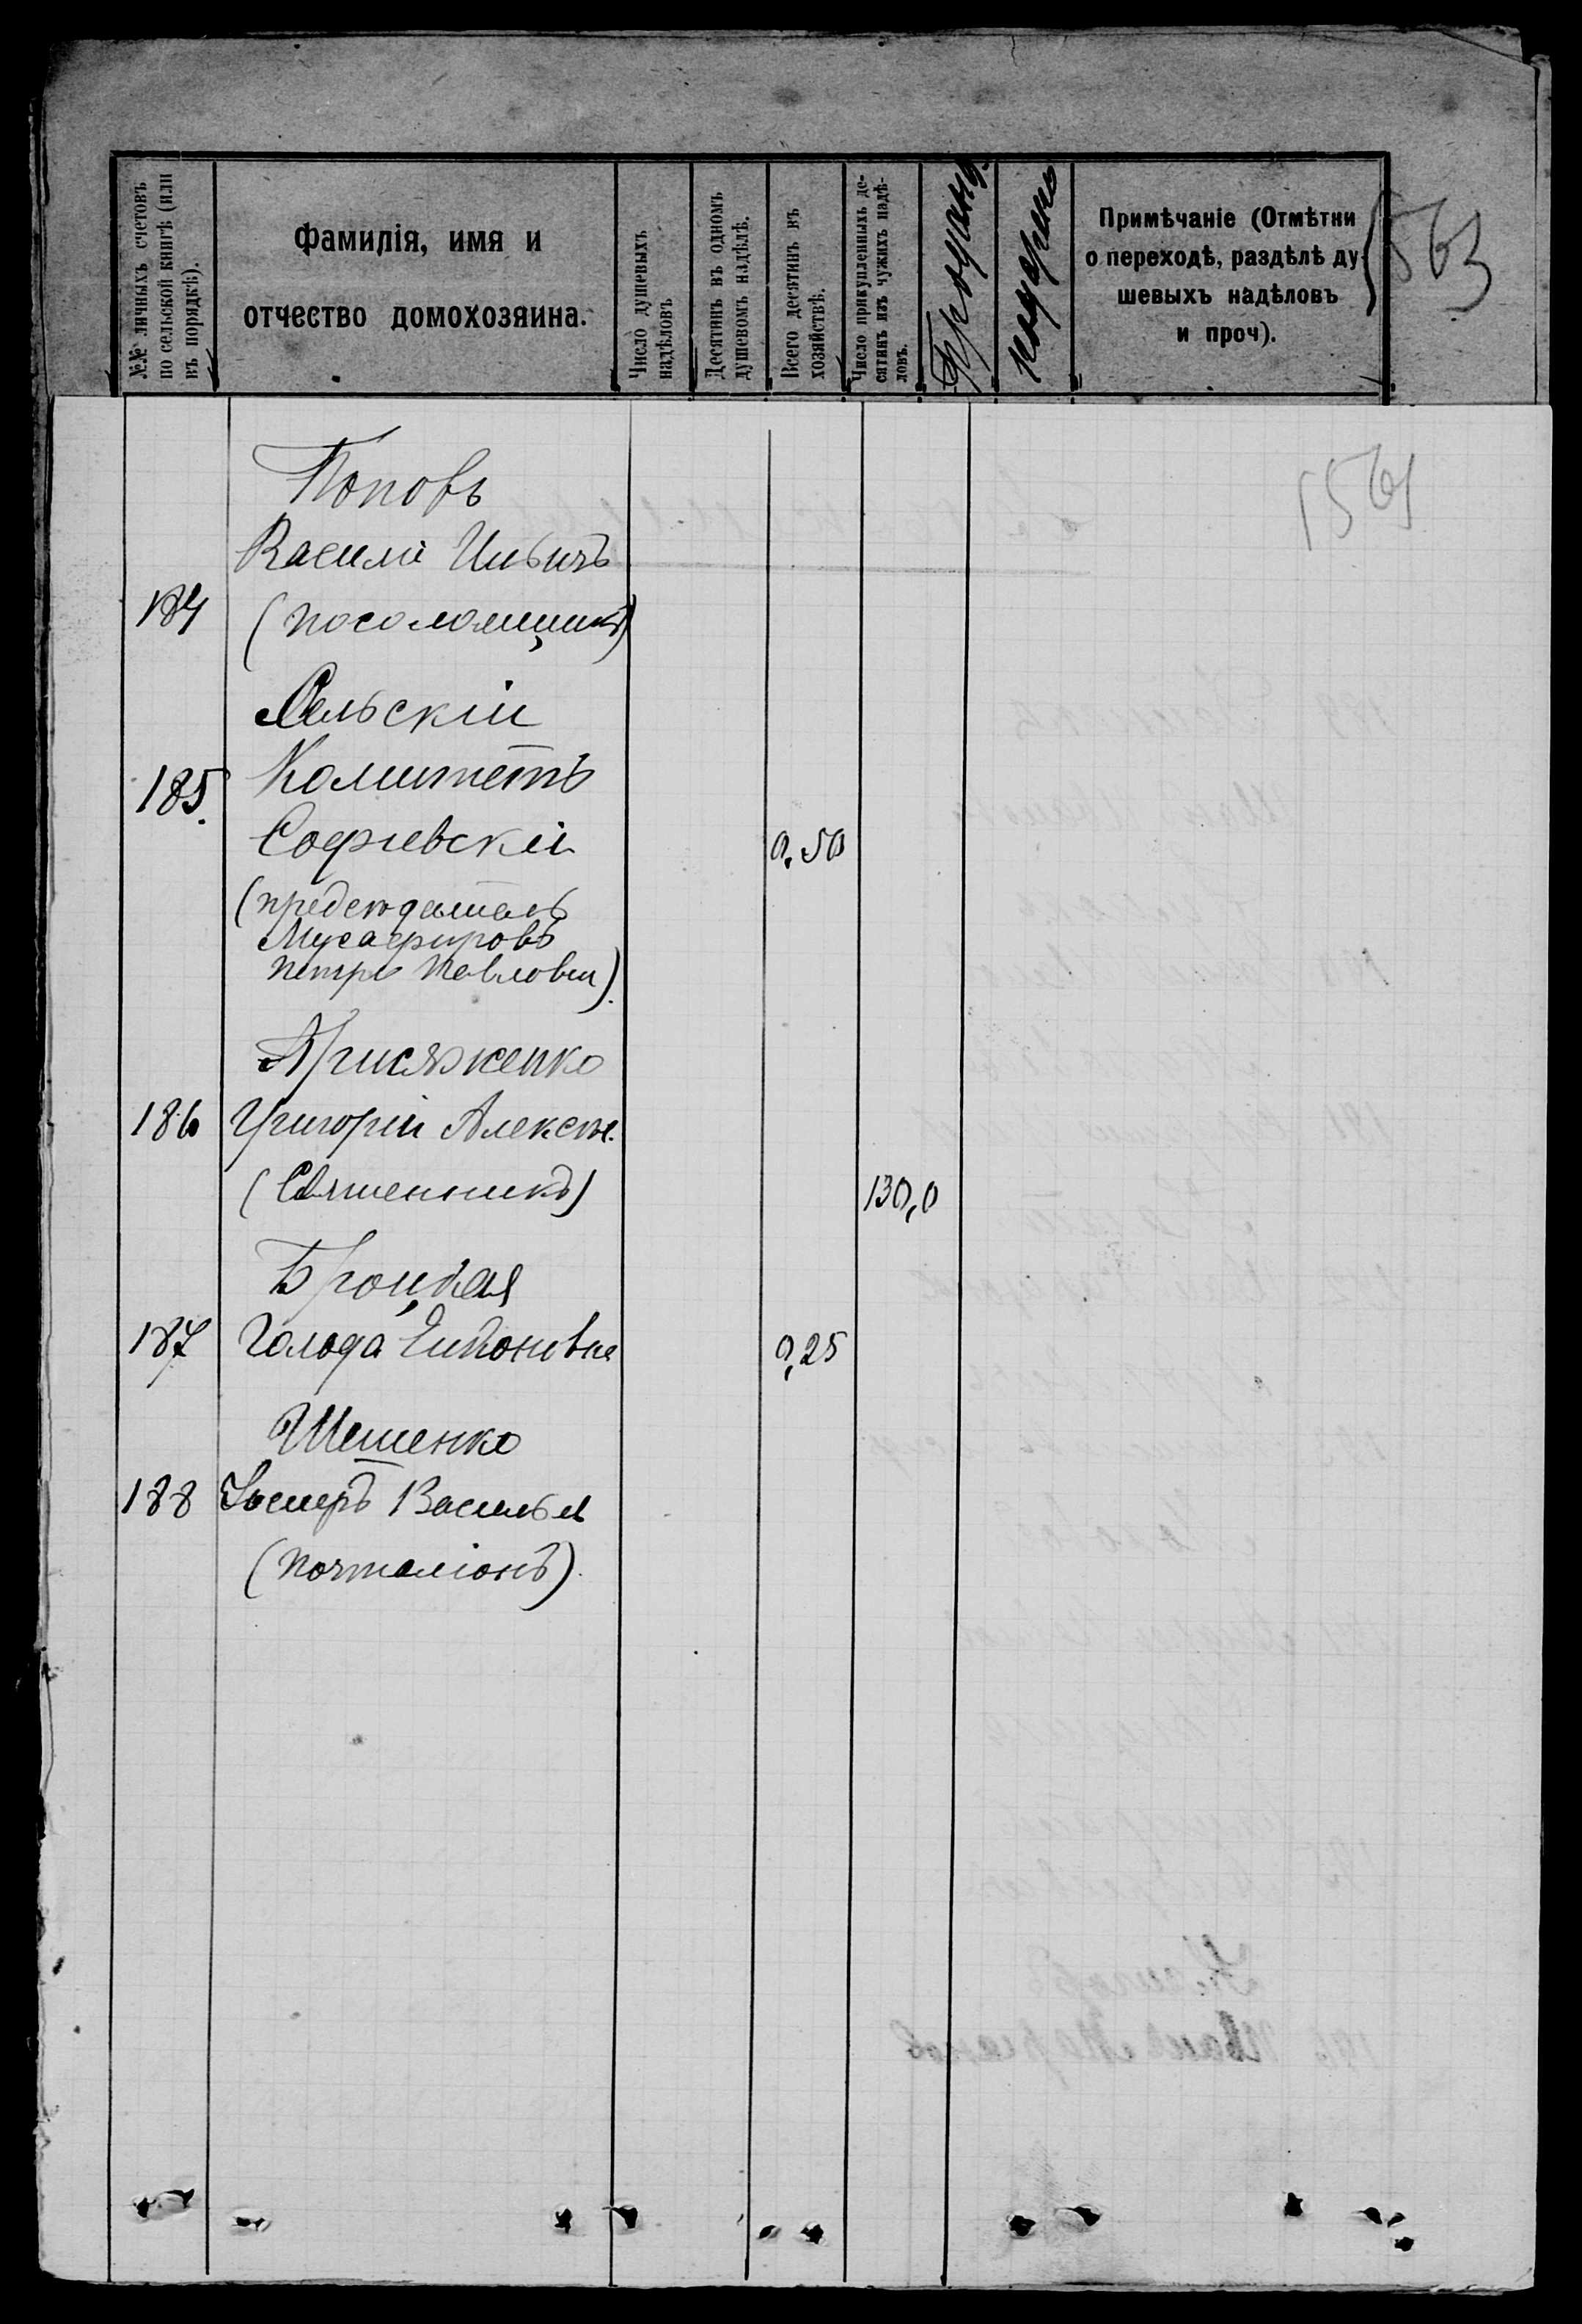 №№ личныхъ счетовъ
по сельской книгѣ (или
въ порядкѣ).
Фамилія, имя и
отчество домохозяина.
Число душевыхъ
надѣловъ
Десятинъ въ одномъ
душевомъ надѣлѣ.
Всего десятинъ въ
хозяйствѣ.
Число прикупленныхъ де-
сятинъ изъ чужихъ надѣ-
ловъ.
Примѣчаніе (Отмѣтки
о переходѣ, раздѣлѣ ду-
шевыхъ надѣловъ
и проч).
563
Поповъ
Василій Ильичъ
184
Сельскій
185. Комитетъ
Софіевскій 0,50
(предсѣдатель
Мусафировъ
Петръ Павлович)
Присяженко
186 Григорій Алексѣе.
(Священникъ) 130,0
Броцкая
187 0,25
Шешенко
188 Васильев
(почталіонъ).